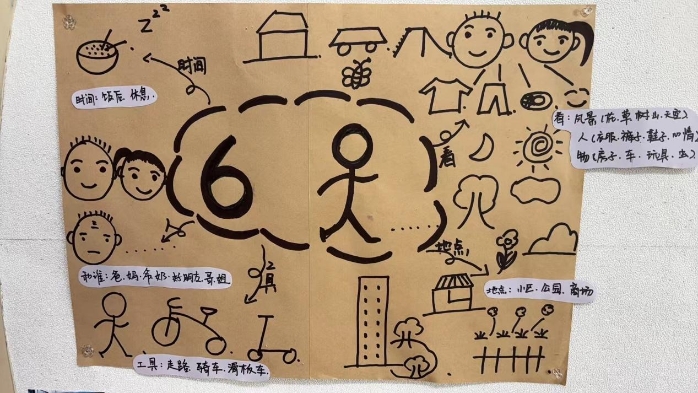 zzz
时间
时间：饭后.休息.
6
看
看：风景(花.草.树.山.天空)
人(衣服.裤子.鞋子.心情)
物(房子.车.玩具.虫)
地点
和谁：爸.妈.爷.奶.朋友.哥.姐
工具
地点：小区.公园.商场
工具：走路.骑车.滑板车.